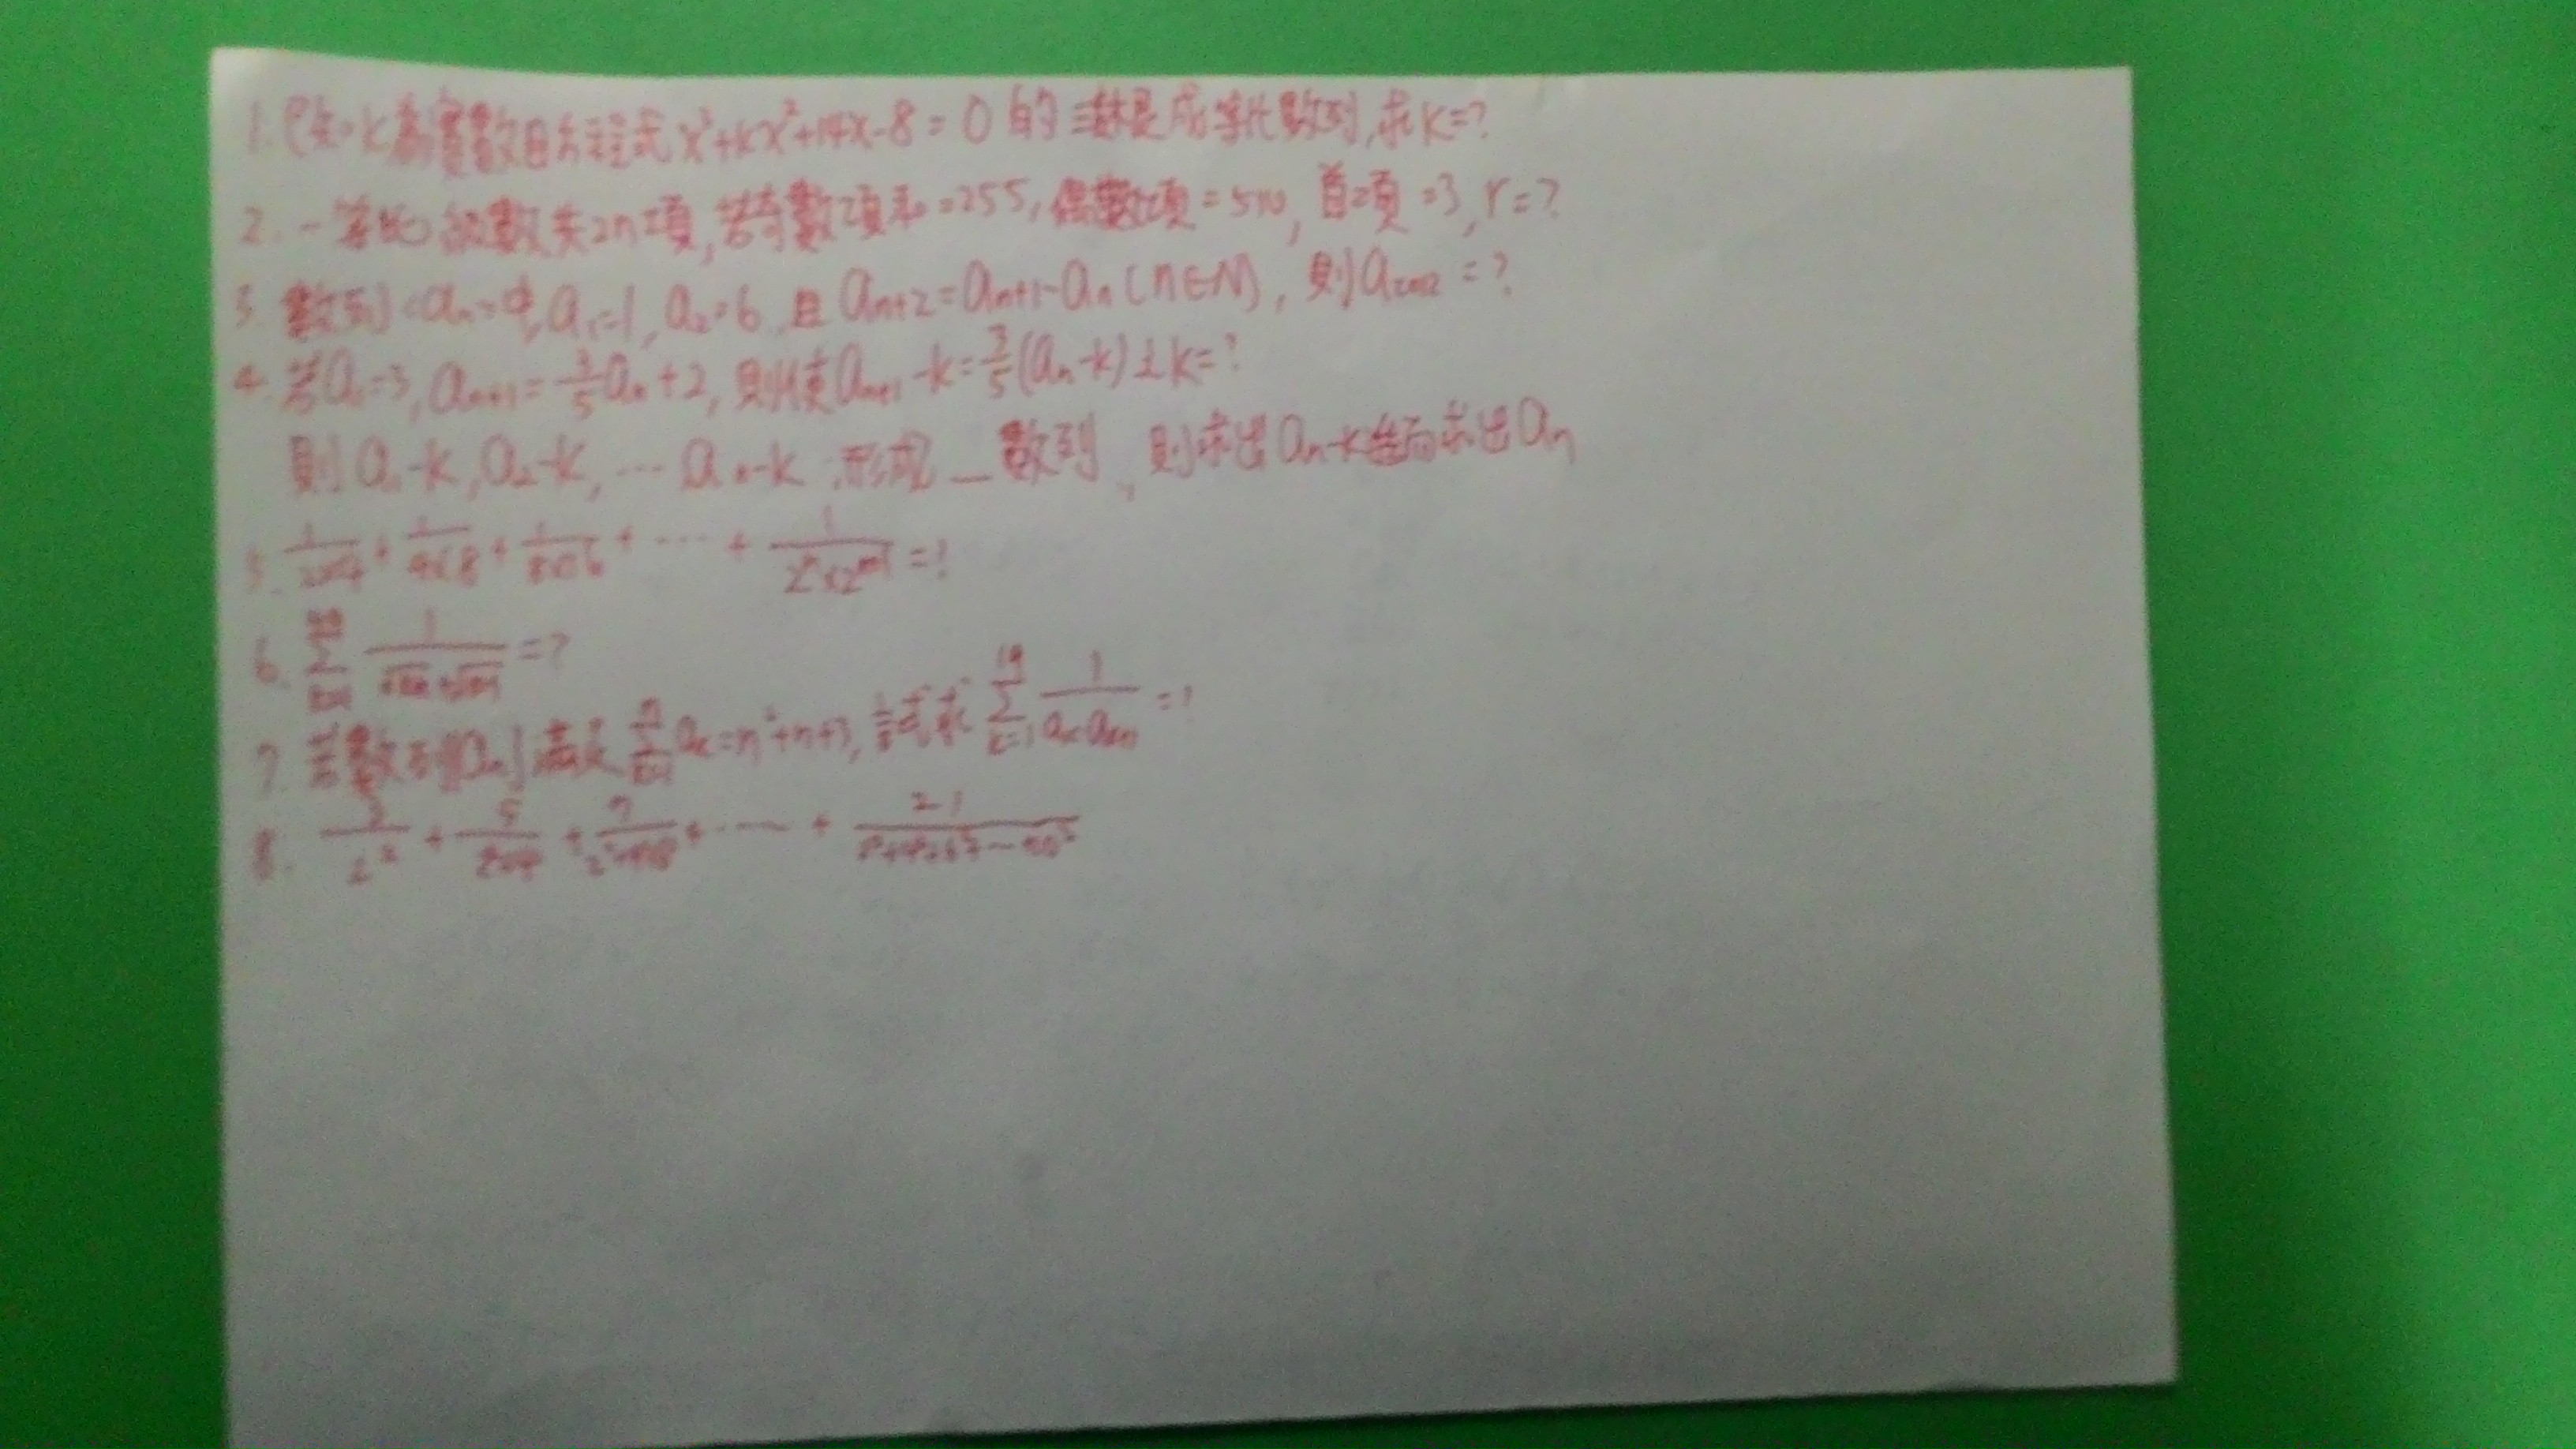 1. 已知k為實數且方程式x³+kx²+14x-8=0的三根成等比數列,求k=?
2. 一等比級數共2n項,若奇數項和=255,偶數項=510,首項=3,r=?
3. 數列<an>中,a₁=1,a₂=6 且 an+2=an+1-an(n∈N),則a =?
4. 若a₁=3,an+1=3/5an+2,則使an+1-k=3/5(an-k)之k=?
則a₁-k,a₂-k,…an-k 形成_數列,則求出an-k進而求出an
5. 1/2×4+1/4×8+1/8×16+…+1/2ⁿ×2ⁿ⁺¹=?
6. Σ 1/ =?
7. 若數列 an 滿足 Σ ak=n²+n+3,試求 19Σk=1 1/akak+1=?
8. 3/2²+5/ +7/ +…+21/